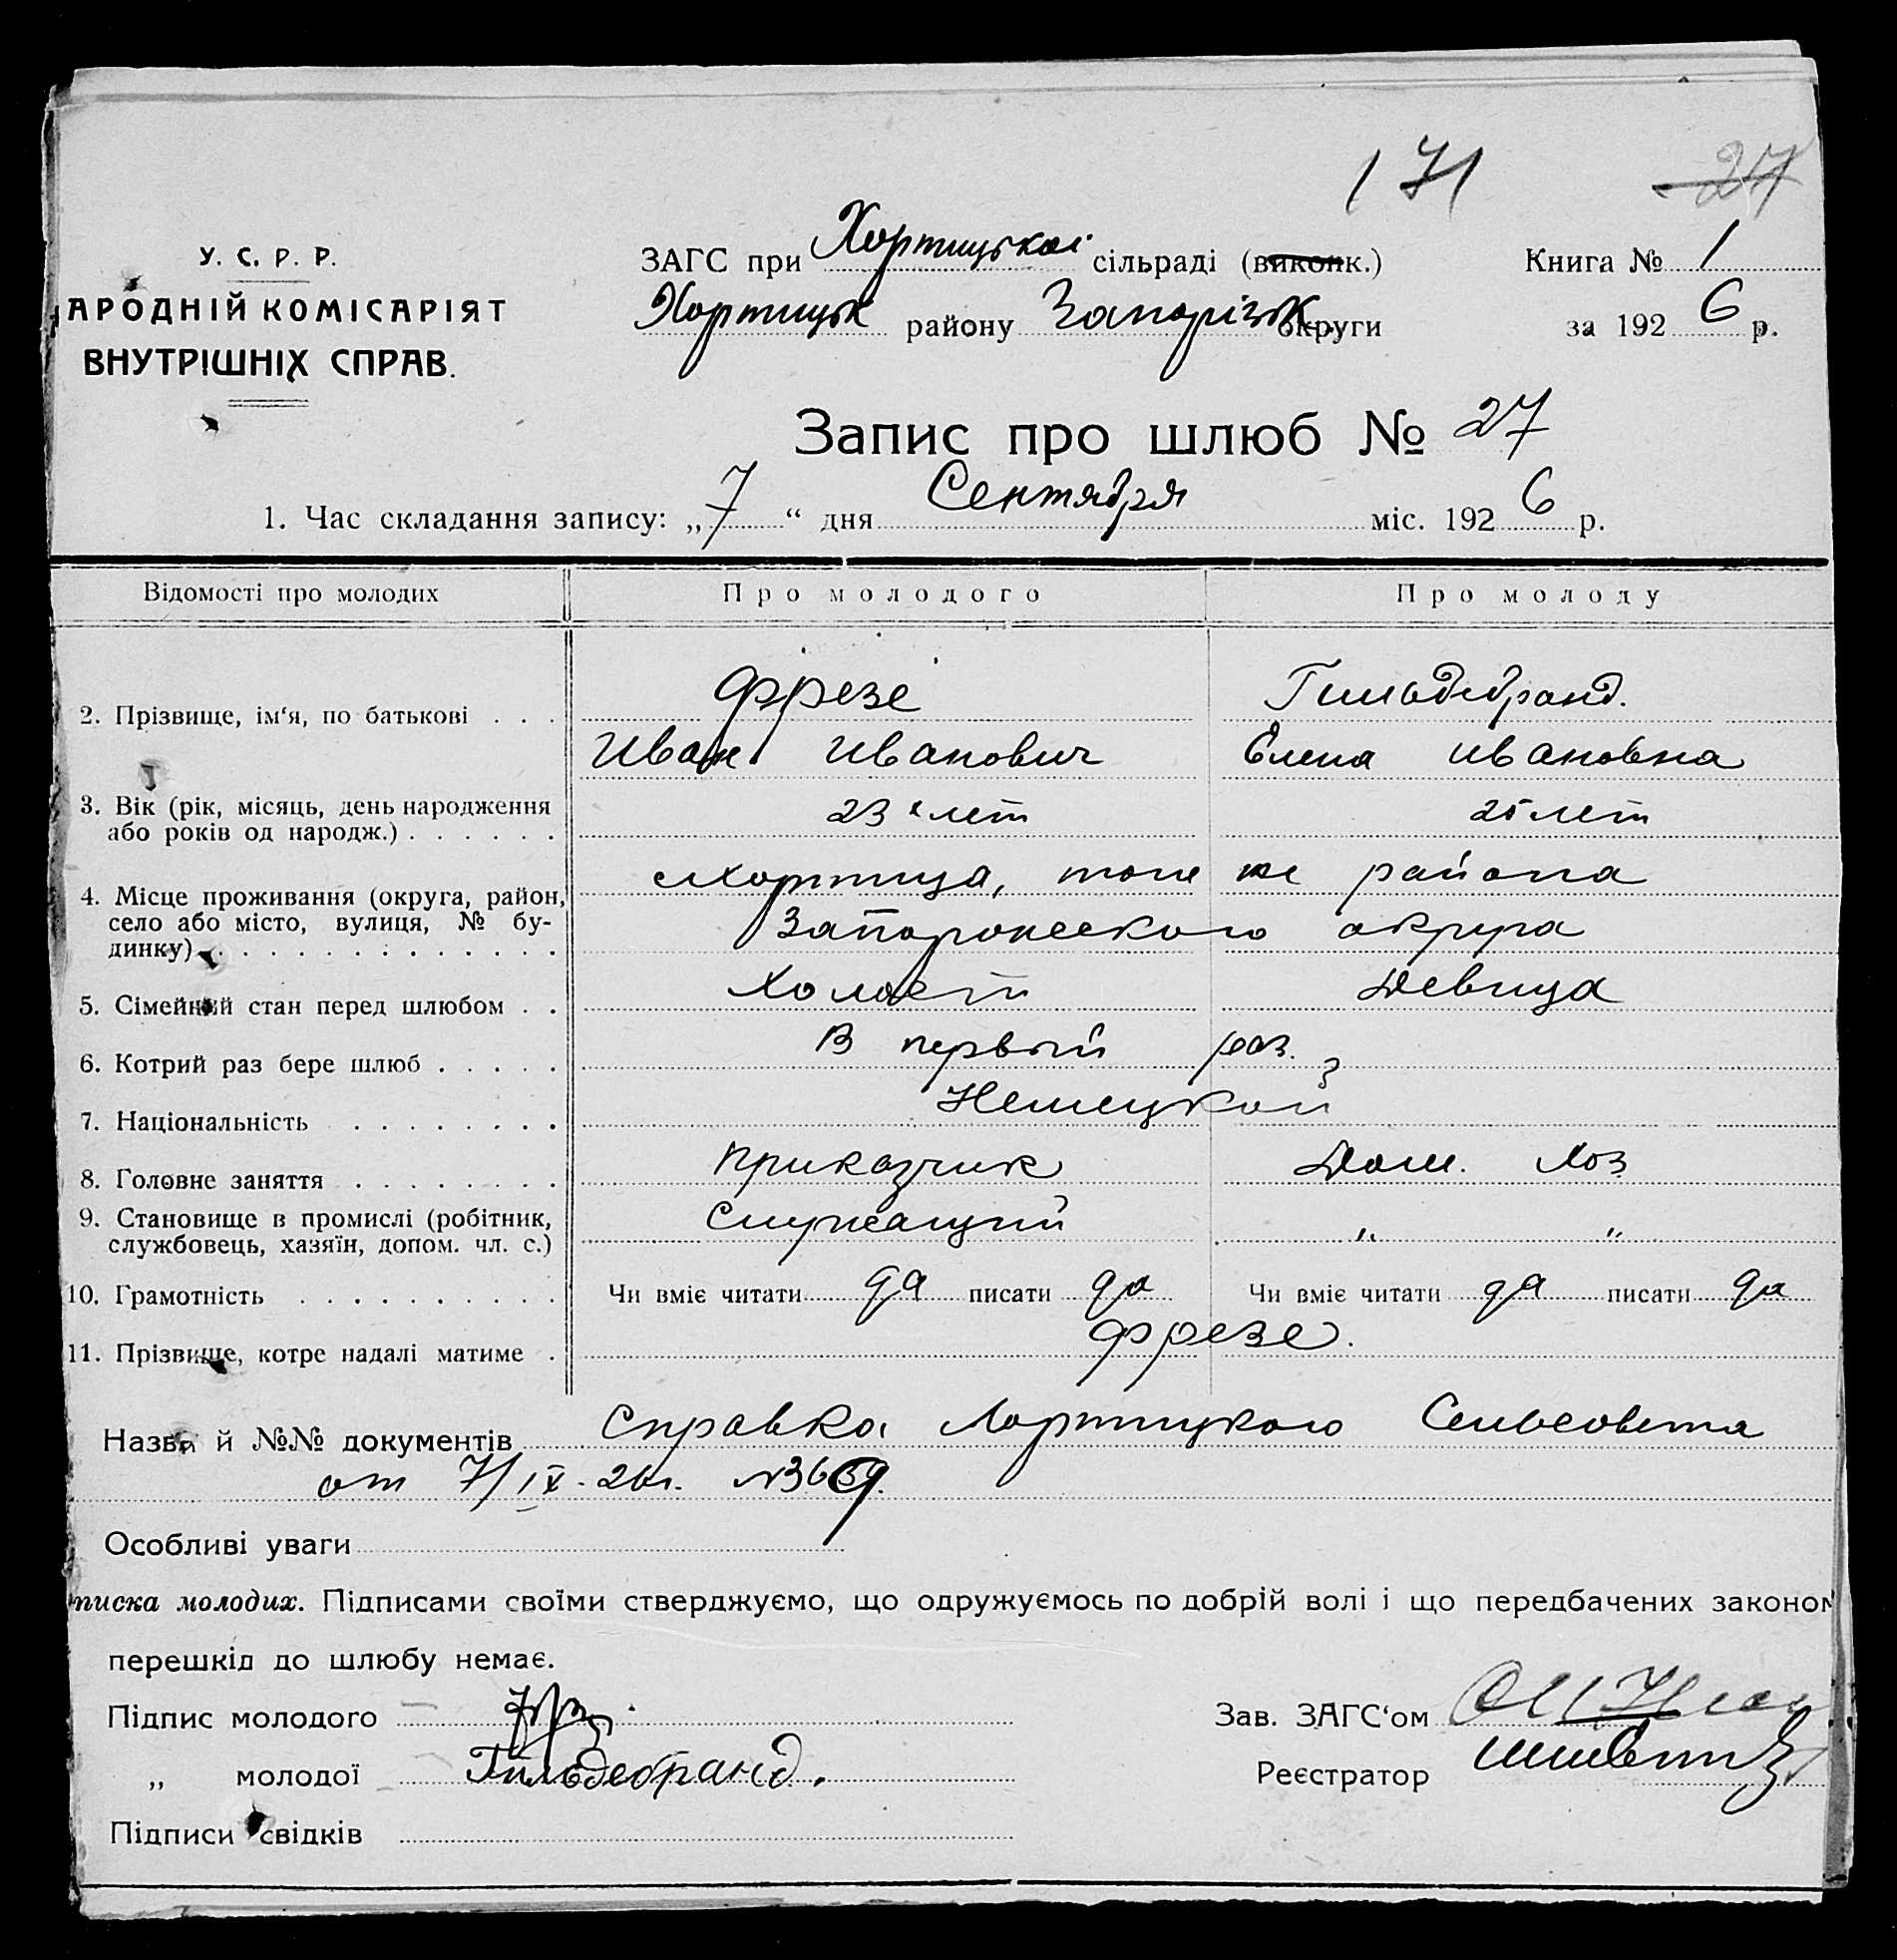 171 27
У. С. Р. Р.
АРОДНІЙ КОМІСАРІЯТ
ВНУТРІШНІХ СПРАВ.
ЗАГС при Хортицькоі сільраді (виконк.) Книга № 1
Хортицьк району Запорізьк округи за 192 6 р.
Запис про шлюб № 27
1. Час складання запису: „ 7 “ дня Сентября міс. 192 6 р.
Відомості про молодих Про молодого Про молоду
2. Прізвище, ім‘я, по батькові . . . Фрезе Гильдебранд.
Иван Иванович Елена Ивановна
3. Вік (рік, місяць, день народження
або років од народж.) . . . . . . 23 х лет 25 лет
4. Місце проживання (округа, район, Хортица, того же района
село або місто, вулиця, № бу- Запорожского округа
динку) . . . . . . . . . . . . .
5. Сімейний стан перед шлюбом . . Холост Девица
6. Котрий раз бере шлюб . . . . . В первый раз.
7. Національність . . . . . . . . Немецкой
8. Головне заняття . . . . . . . . приказчик Дом. Хоз
9. Становище в промислі (робітник,
службовець, хазяїн, допом. чл. с.) Служащий „ „
10. Грамотність . . . . . . . . . . Чи вміє читати да писати да Чи вміє читати да писати да
11. Прізвище, котре надалі матиме . Фрезе.
Назва й №№ документів Справка Хортицкого Сельсовета
от 7/IX-26г. №3639.
Особливі уваги
писка молодих. Підписами своїми стверджуємо, що одружуємось по добрій волі і що передбачених законом
перешкід до шлюбу немає.
Підпис молодого Зав. ЗАГС‘ом
„ молодої Гильдебранд. Реєстратор
Підписи свідків